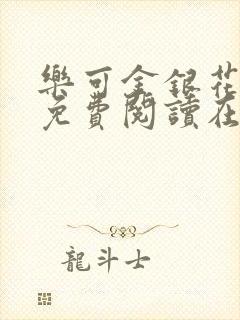 樂可金銀花
免費閱讀在
龍斗士